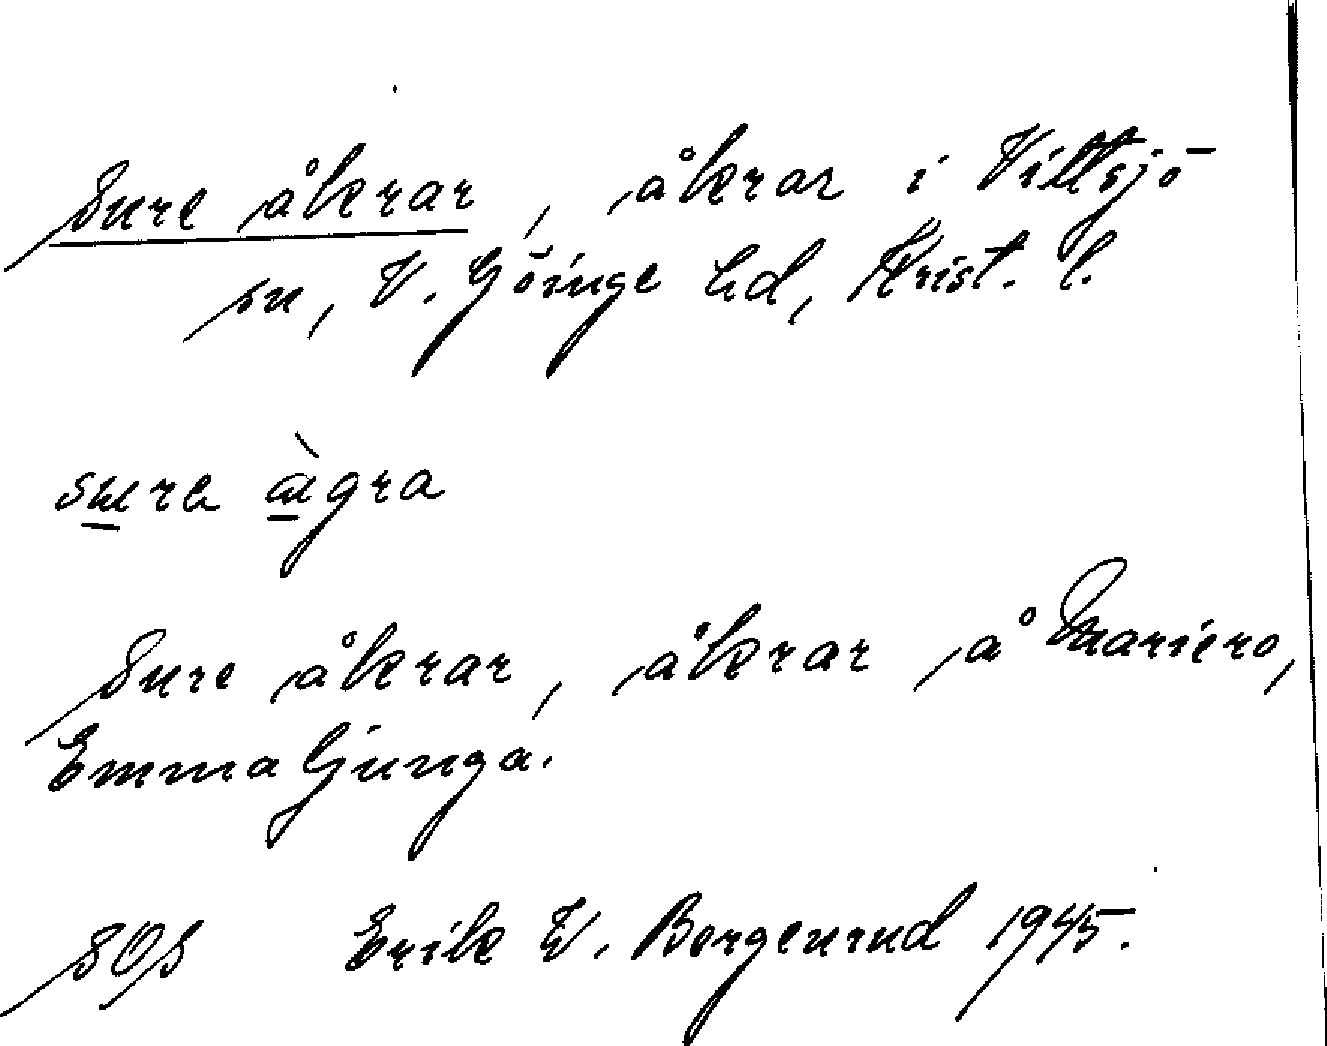 Sure åkrar, åkrar i Vittsjö
sn, V. Göinge hd, Krist. l.
sure ægra
Sure åkrar, åkrar å Mariero,
Emmaljunga.
SOS Erik W. Borgenrud 1945.